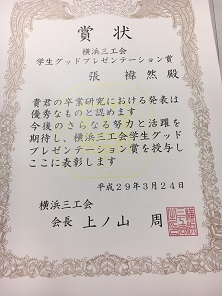 賞状
横浜三工会
学生グッドプレゼンテーション賞
張 禕然 殿
貴君の卒業研究における発表は
優秀なものと認めます
今後のさらなる努力と活躍を
期待し、横浜三工会学生グッド
プレゼンテーション賞を授与し
ここに表彰します
平成29年3月24日
横浜三工会
会長 上ノ山 周